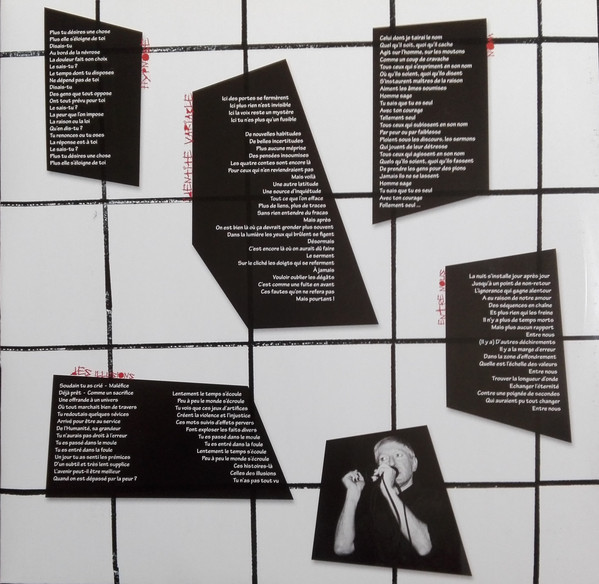 HYPNOSE
Plus tu désires une chose
Plus elle s'éloigne de toi
Disais-tu
Au bord de la névrose
La douleur fait son choix
Le sais-tu ?
Le temps dont tu disposes
Ne dépend pas de toi
Disais-tu
Des gens que tout oppose
Ont tout prévu pour toi
Le sais-tu ?
La peur que l'on impose
La raison ou la loi
Qu'en dis-tu ?
Tu renonces ou tu oses
La réponse est à toi
Le sais-tu ?
Plus tu désires une chose
Plus elle s'éloigne de toi
IDENTITE VARIABLE
Ici des portes se fermèrent
Ici plus rien n'est invisible
Ici la voix reste un mystère
Ici tu n'es plus qu'un fusible
De nouvelles habitudes
De belles incertitudes
Plus aucune méprise
Des pensées insoumises
Les quatre contes sont encore là
Pour ceux qui n'en reviendraient pas
Mais voilà
Une autre latitude
Une source d'inquiétude
Tout ce que l'on efface
Plus de liens, plus de traces
Sans rien entendre du fracas
Mais après
On est bien là où ça devrait gronder plus souvent
Dans la lumière les yeux qui brûlent se figent
Désormais
C'est encore là où on aurait dû faire
Le serment
Sur le cliché les doigts qui se referment
À jamais
Vouloir oublier les dégâts
C'est comme une fuite en avant
Ces fautes qu'on ne refera pas
Mais pourtant !
NON
Celui dont je tairai le nom
Quel qu'il soit, quoi qu'il cache
Agit sur l'homme, sur les moutons
Comme un coup de cravache
Tous ceux qui s'expriment en son nom
Où qu'ils soient, quoi qu'ils disent
S'instaurent maîtres de la raison
Aiment les âmes soumises
Homme sage
Tu sais que tu es seul
Avec ton courage
Tellement seul
Tous ceux qui subissent en son nom
Par peur ou par faiblesse
Ploient sous les discours, les sermons
Qui jouent de leur détresse
Tous ceux qui agissent en son nom
Quels qu'ils soient, quoi qu'ils fassent
De prendre les gens pour des pions
Jamais ils ne se lassent
Homme sage
Tu sais que tu es seul
Avec ton courage
Tellement seul ...
ENTRE NOUS
La nuit s'installe jour après jour
Jusqu'à un point de non-retour
L'ignorance qui gagne alentour
A eu raison de notre amour
Des séquences en chaîne
Et plus rien qui les freine
Il n'y a plus de temps morts
Mais plus aucun rapport
Entre nous
(Il y a) D'autres déchirements
Il y a la marge d'erreur
Dans la zone d'effondrement
Quelle est l'échelle des valeurs
Entre nous
Trouver la longueur d'onde
Echanger l'éternité
Contre une poignée de secondes
Qui auraient pu tout changer
Entre nous
DES ILLUSIONS
Soudain tu as crié - Maléfice
Déjà prêt - Comme un sacrifice
Une offrande à un univers
Où tout marchait bien de travers
Tu redoutais quelques sévices
Arrivé pour être au service
De l'Humanité, sa grandeur
Tu n'aurais pas droit à l'erreur
Tu es passé dans le moule
Tu es entré dans la foule
Un jour tu as senti les prémices
D'un subtil et très lent supplice
L'avenir peut-il être meilleur
Quand on est dépassé par la peur ?
Lentement le temps s'écoule
Peu à peu le monde s'écroule
Tu vois que ces jeux d'artifices
Créent la violence et l'injustice
Ces mots suivis d'effets pervers
Font exploser les faits divers
Tu es passé dans le moule
Tu es entré dans la foule
Lentement le temps s'écoule
Peu à peu le monde s'écroule
Ces histoires-là
Celles des illusions
Tu n'as pas tout vu